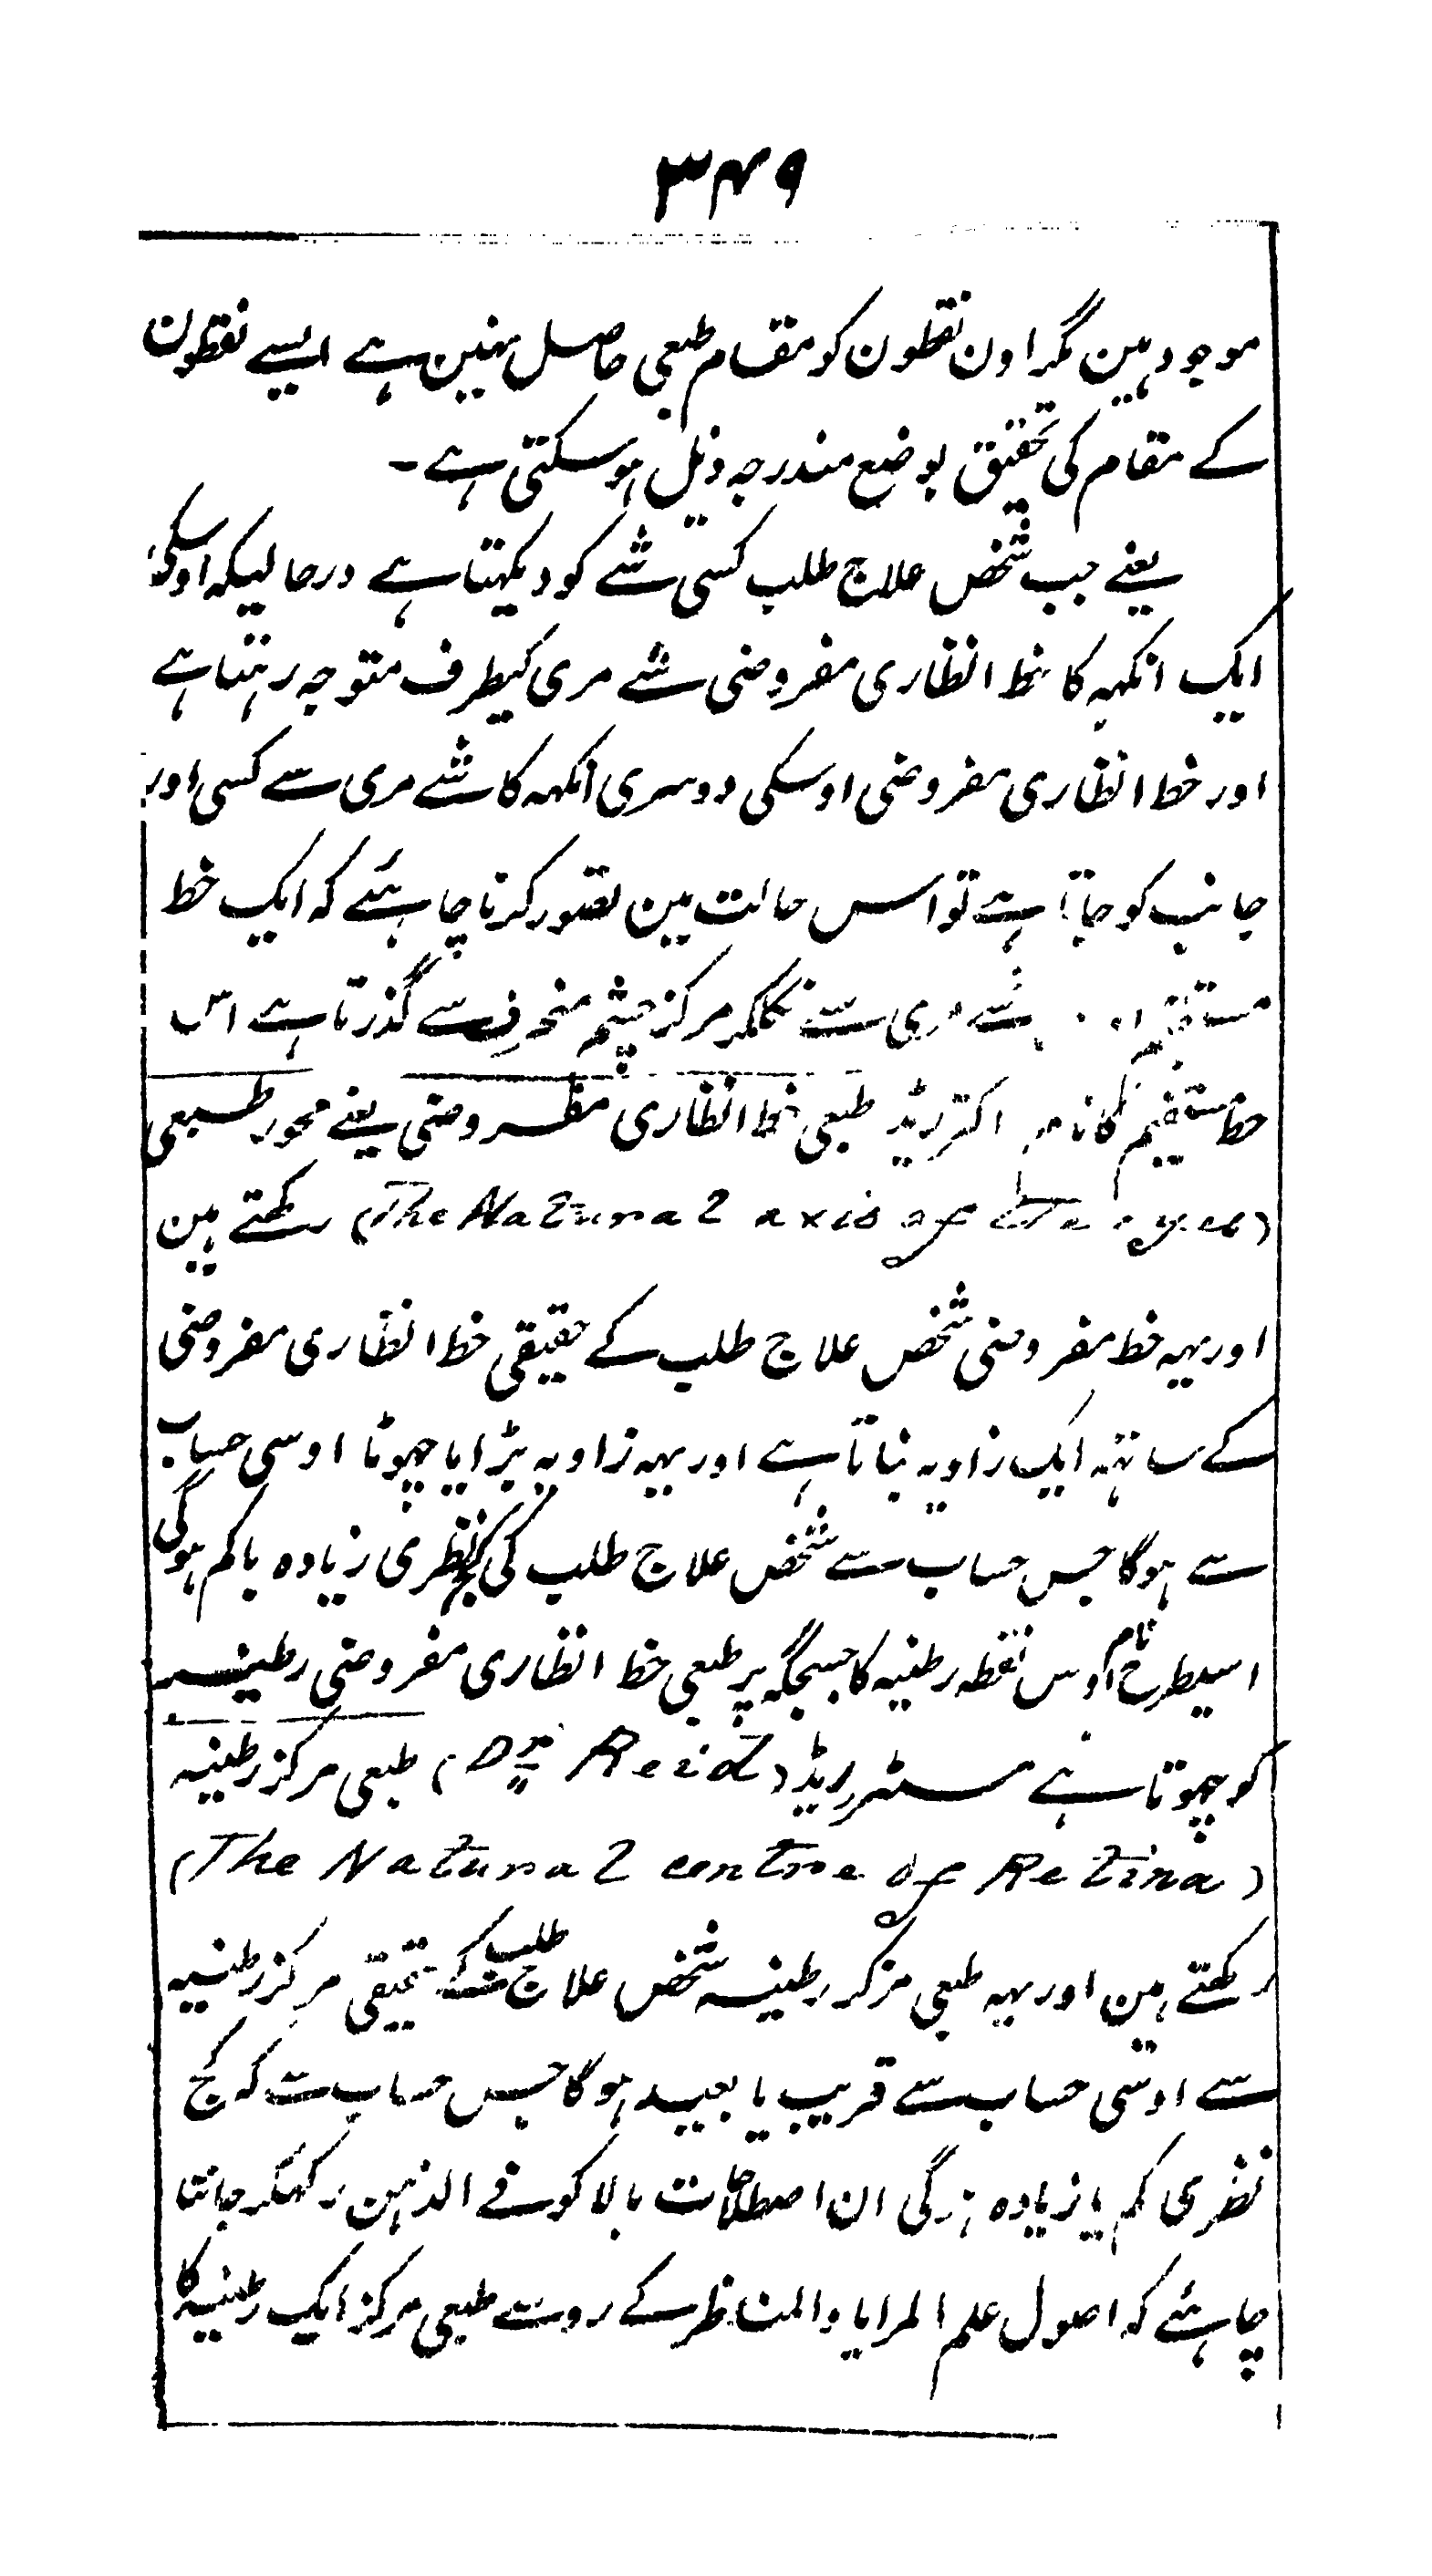 ۳۴۹
موجود ہین مگر اون نقطون کو مقام طبعی حاصل نہین ہے ایسے نقطون
کے مقام کی تحقیق بوضع مندرجہ ذیل ہو سکتی ہے۔
یعنے جب شخص علاج طلب کسی شے کو دیکہتا ہے درحالیکہ اوسکی
ایک انکہہ کا خط انظاری مفروضی شے مری کیطرف متوجہ رہتا ہے
اور خط انظاری مفروضی اوسکی دوسری انکہہ کا شے مری سے کسی اور
جانب کو جاتا ہے تو اس حالت مین تصور کرنا چاہئے کہ ایک خط
مستقیم شے مری سے نکلکر مرکز چشم منحرف سے گذرتا ہے اس
خط مستقیم کا نام اکٹر ریڈ طبعی خط انظاری مفروضی یعنے محور طبعی
(The Natural axis of the eyes) رکھتے ہین
اور یہہ خط مفروضی شخص علاج طلب کے حقیقی خط انظاری مفروضی
کے ساتہہ ایک زاویہ بناتا ہے اور یہہ زاویہ بڑا یا چہوٹا اوسی حساب
سے ہوگا جس حساب سے شخص علاج طلب کی کج نظری زیادہ یا کم ہوگی
اسیطرح نام اوس نقطہ رطینیہ کا جسجگہ پر طبعی خط انظاری مفروضی رطینیہ
کو چہوتا ہے مسٹر ریڈ (Dr Reid) طبعی مرکز رطینیہ
(The Natural centre of Retina)
رکھتے ہین اور یہہ طبعی مرکز رطینیہ شخص علاج طلب کے حقیقی مرکز رطینیہ
سے اوسی حساب سے قریب یا بعید ہوگا جس حساب سے کہ کج
نظری کم یا زیادہ ہوگی ان اصطلاحات بالا کو فے الذہن رکھکر جاننا
چاہئے کہ اصول علم المرایا والمناظر کے رو سے طبعی مرکز ایک رطینیہ کا